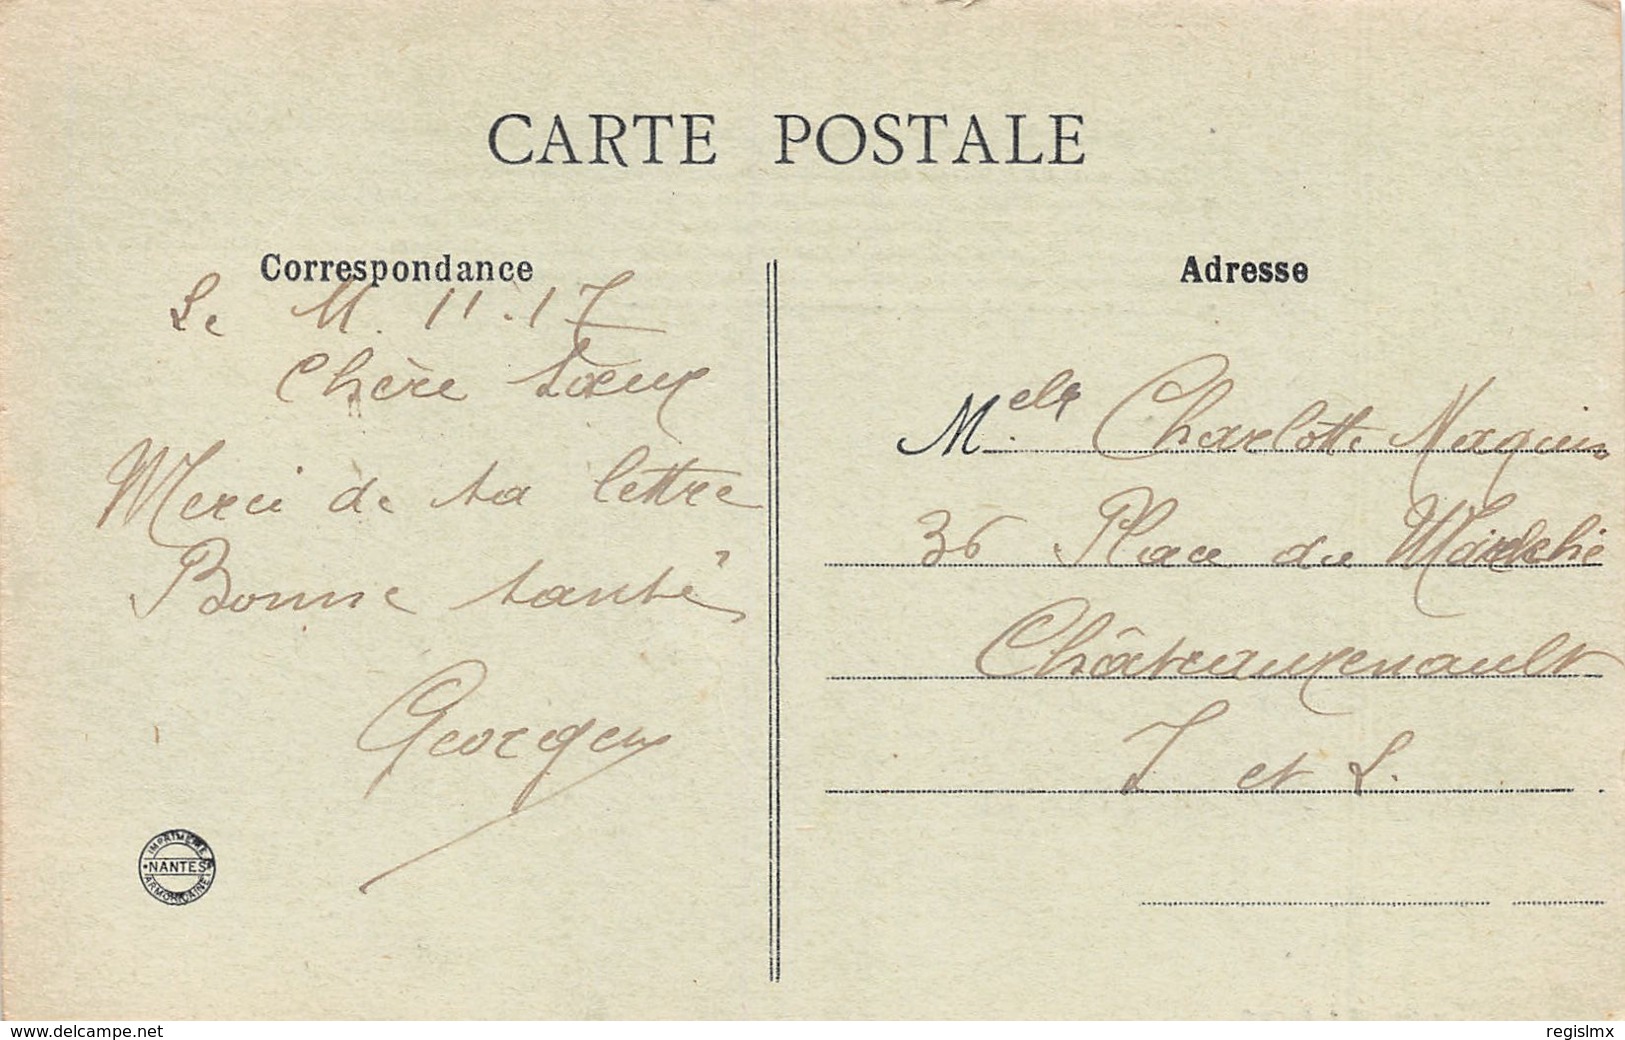 CARTE POSTALE
Correspondance
Le 11.11.17
Chère Sœur
Merci de ta lettre
Bonne santé
Georges
IMPRIMERIE
NANTES
ARMORICAINE
Adresse
Melle Charlotte Naquin
36 Place du Marché
Châteaurenault
I et L.
www.delcampe.net
regislmx